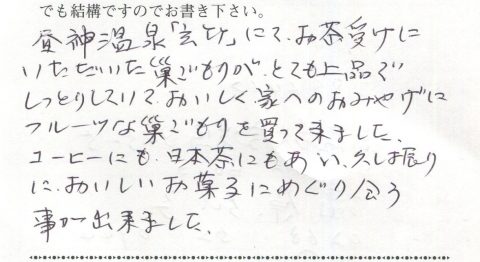 でも結構ですのでお書き下さい。
昼神温泉「玄竹」にて、お茶受けに
いただいた巣ごもりが、とても上品で
しっとりしていて、おいしく、家へのおみやげに
フルーツな巣ごもりを買って来ました。
コーヒーにも、日本茶にもあい、久し振り
に、おいしいお菓子にめぐり会う
事が出来ました。